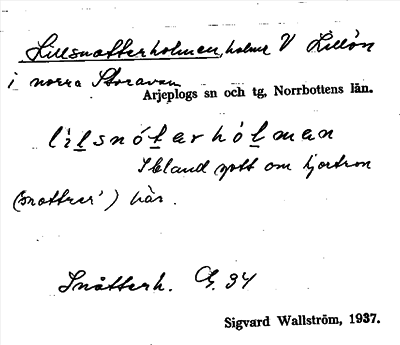 Lillsnotterholmen, holme V Lillön
i norra Storavan
Arjeplogs sn och tg, Norrbottens län.
lìlsnóterhólman
Ibland gott om hjortron
(snottrer') här.
Snåtterh. G. 34
Sigvard Wallström, 1937.